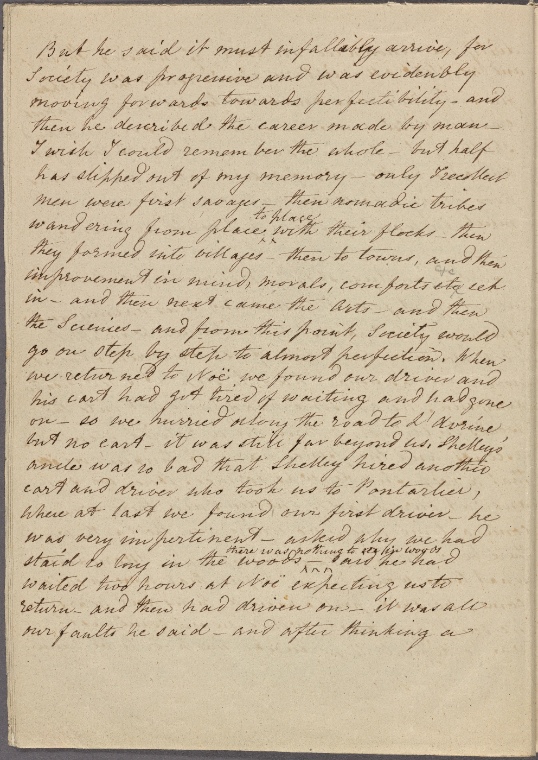 But he said it must infallibly arrive, for
Society was progressive and was evidently
moving forwards towards perfectibility - and
then he described the career made by man -
I wish I could remember the whole - but half
has slipped out of my memory - only I recollect
men were first savages - then nomadic tribes
wandering from place to place with their flocks - then
they formed into villages - then to towns, and then
improvement in mind, morals, comforts etc set
in - and then next came the Arts - and then
the Sciences - and from this point, Society would
go on step by step to almost perfection. When
we returned to Noë we found our driver and
his cart had got tired of waiting and had gone
on - so we hurried along the road to
but no cart - it was still far beyond us. Shelley's
ancle was so bad that Shelley hired another
cart and driver who took us to Pontarlier,
where at last we found our first driver - he
was very impertinent - asked why we had
staid so long in the woods there was nothing to see in woods - said he had
waited two hours at Noë expecting us to
return - and then had driven on - it was all
our faults he said - and after thinking a